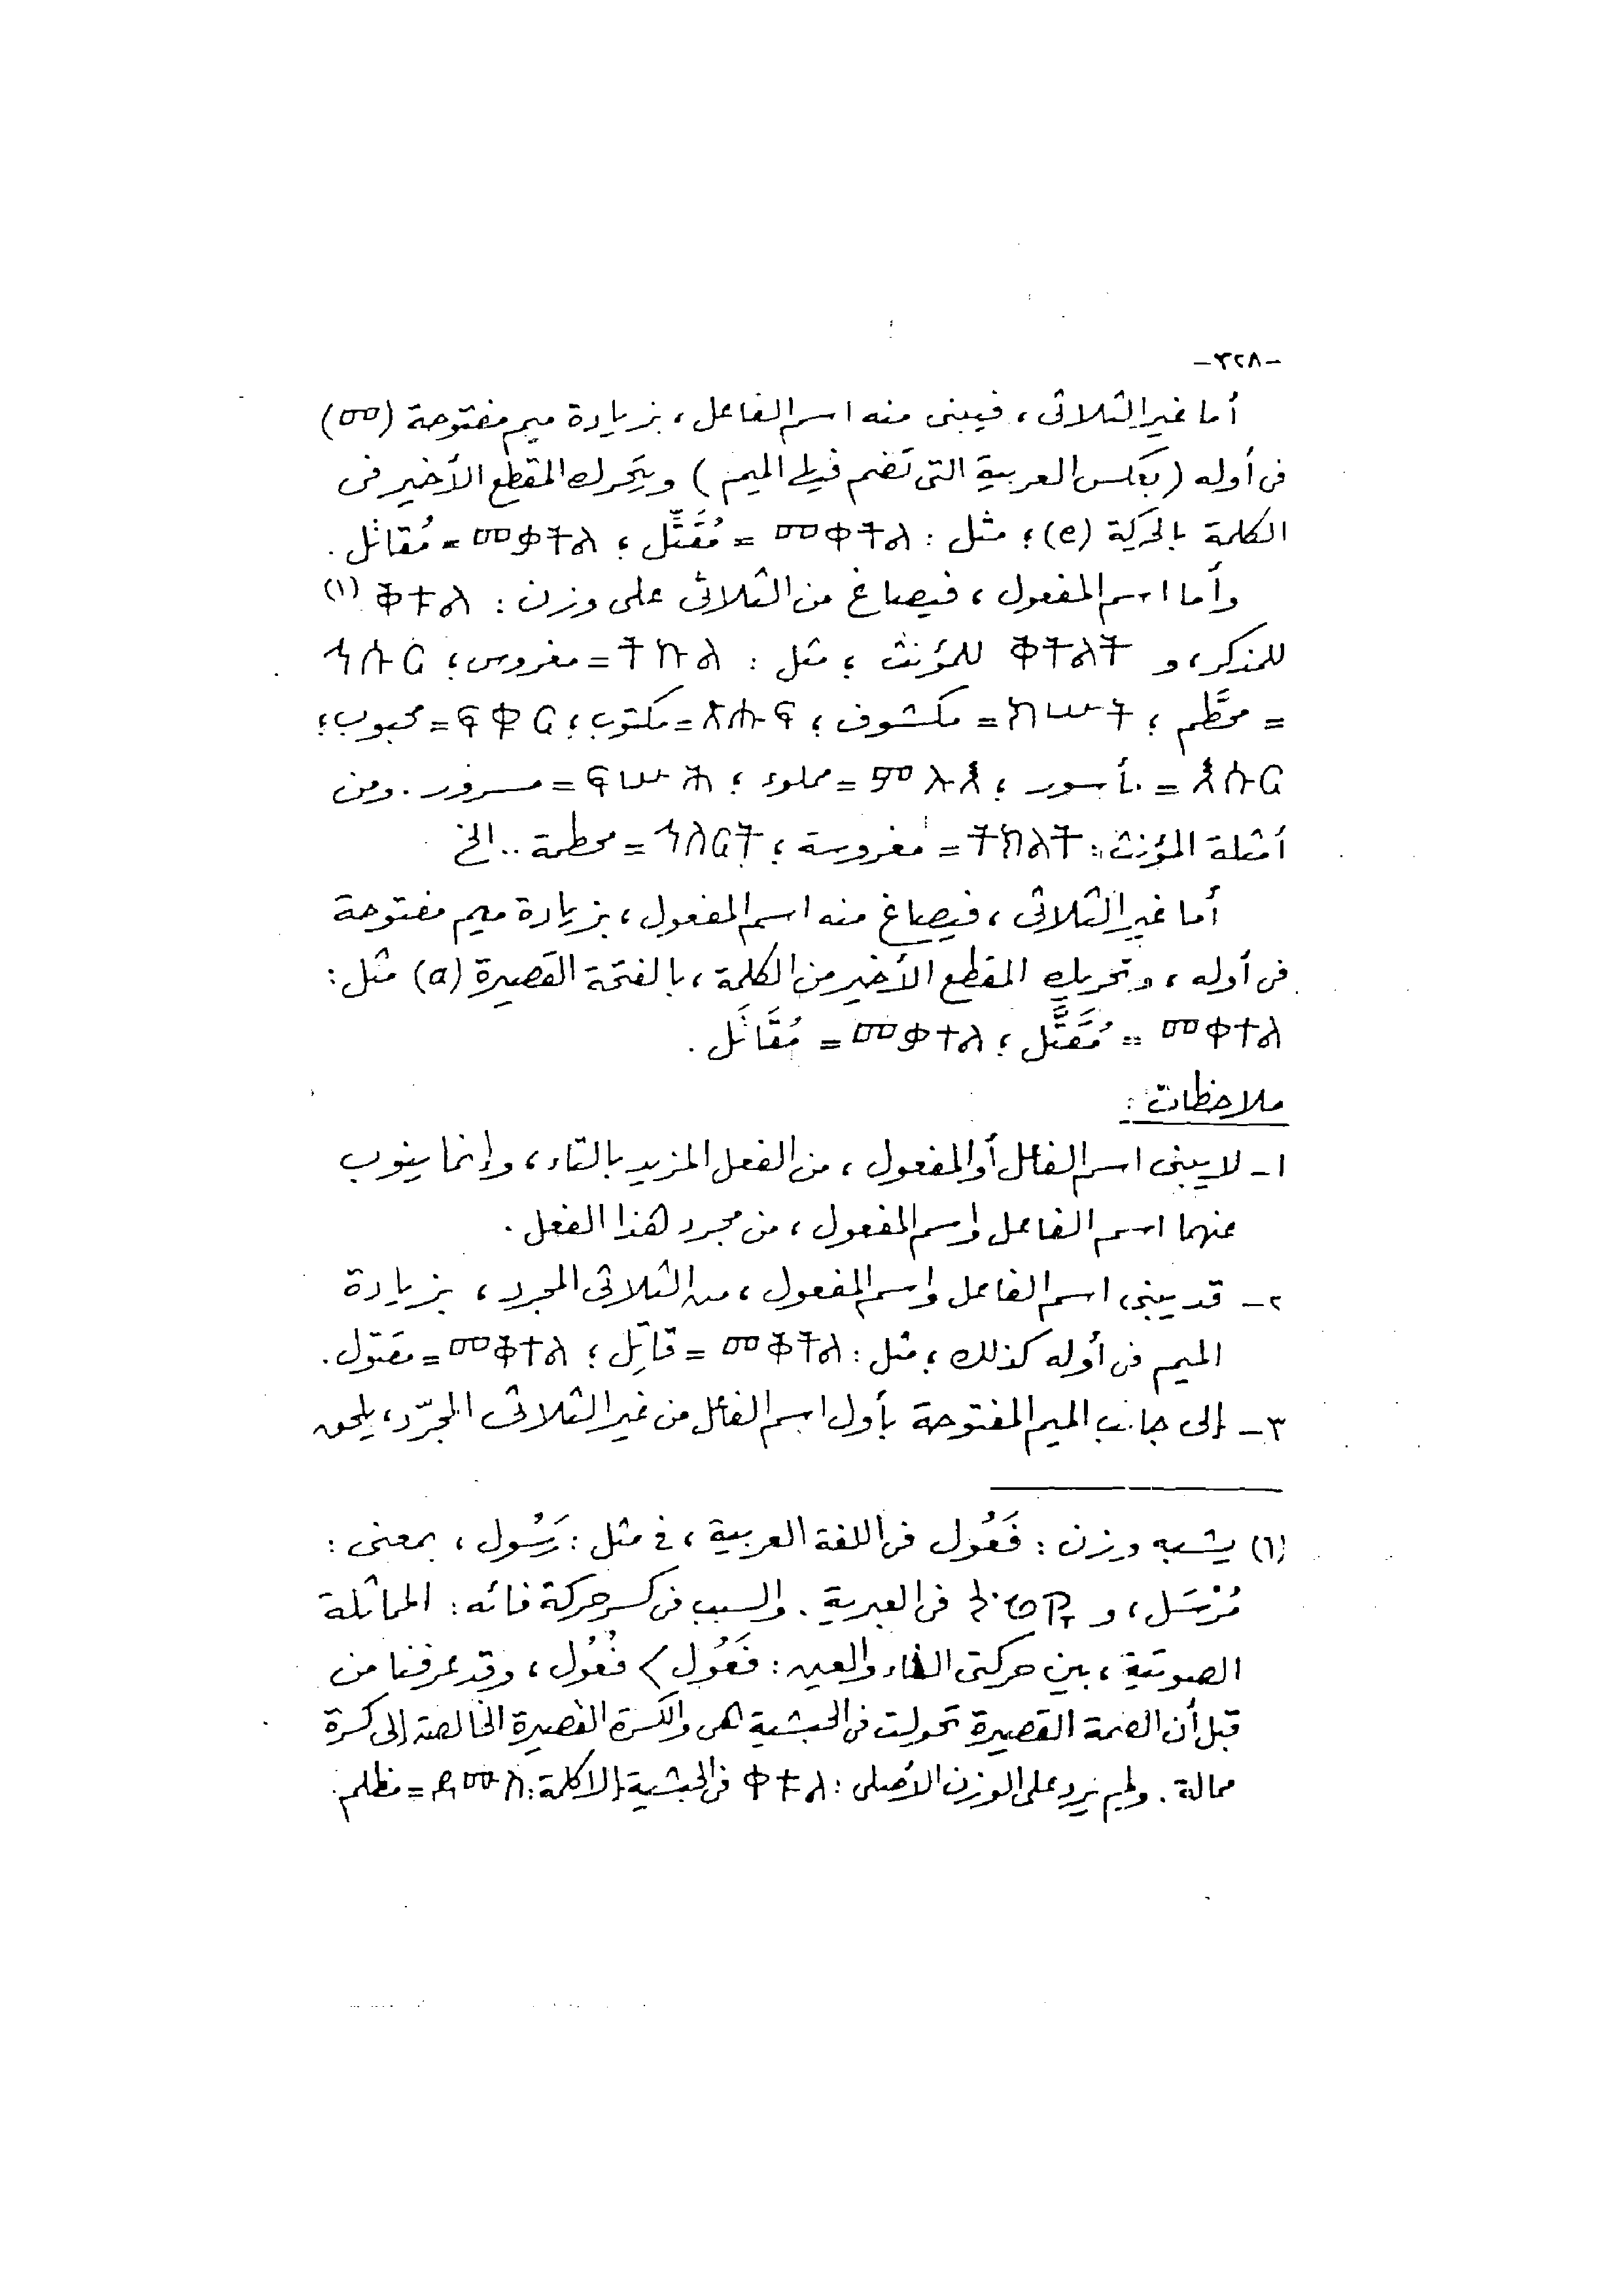 -٣٢٨-
أما غير الثلاثى ، فيبنى منه اسم الفاعل ، بزيادة ميم مفتوحة (መ)
فى أوله (بعكس العربية التى تضم فيها الميم) ويتحرك المقطع الأخير فى
الكلمة بالحركة (e) ؛ مثل : መቀትል = مُقَتِّل ؛ መቃትል = مُقاتل .
وأما اسم المفعول ، فيصاغ من الثلاثى على وزن : ቅቱል (١)
للمذكر ، و ቅትልት للمؤنث ؛ مثل : ትኩል = مغروس ؛ ስቡር
= محطَّم ؛ ክሡት = مكشوف ؛ جሑፍ = مكتوب ؛ ፍቁር = محبوب ؛
እሱር = مأسور ؛ ምሉእ = مملوء ؛ ፍሡሕ = مسرور . ومن
أمثلة المؤنث : ትክልት = مغروسة ؛ ስብርት = محطمة .. الخ
أما غير الثلاثى ، فيصاغ منه اسم المفعول ، بزيادة ميم مفتوحة
فى أوله ، وتحريك المقطع الأخير من الكلمة ، بالفتحة القصيرة (a) مثل :
መቀተል = مُقَتَّل ؛ መቃተል = مُقَاتَل .
ملاحظات :
١- لا يبنى اسم الفاعل أو المفعول ، من الفعل المزيد بالتاء ، وإنما ينوب
عنهما اسم الفاعل واسم المفعول ، من مجرد هذا الفعل .
٢- قد يبنى اسم الفاعل واسم المفعول ، من الثلاثى المجرد ، بزيادة
الميم فى أوله كذلك ؛ مثل : መቅትል = قاتِل ؛ መቅተል = مقتول .
٣- إلى جانب الميم المفتوحة بأول اسم الفاعل من غير الثلاثى المجرّد ، يلحق
(١) يشبه وزن : فَعُول فى اللغة العربية ، فى مثل : رَسُول ، بمعنى :
مُرْسَل ، و فى العبرية . والسبب فى كسر حركة فائه : المماثلة
الصوتية ، بين حركتى الفاء والعين : فَعُول > فُعُول ، وقد عرفنا من
قبل أن الضمة القصيرة تحولت فى الحبشية هى والكسرة القصيرة الخالصة إلى كسرة
ممالة . ولم يرد على الوزن الأصلى : ቀቱል فى الحبشية إلا كلمة : = مظلم .